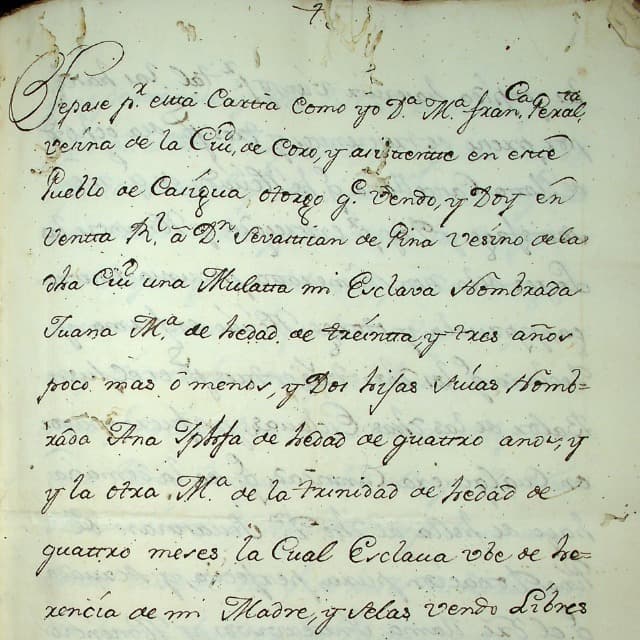 4
Sepase pr esta Cartta como yo Da Ma Franca Peralta
vesina de la Ciud, de Coro, y asistentte en este
Pueblo de Casigua, otorgo q.e vendo, y Doy en
ventta Rl â Dn Sevasttian de Pina vesino de la
dha Ciud una Mulatta mi Esclava Nombrada
Juana Ma de hedad de treintta, y tres años,
poco mas ô menos, y Dos hijas súas Nom̃b-
rada Ana Jphfa de hedad de quattro anos, y
y la otra Ma de la trinidad de hedad de
quattro meses la Cual Esclava vbe de he-
rencia de mi Madre, y selas vendo Libres